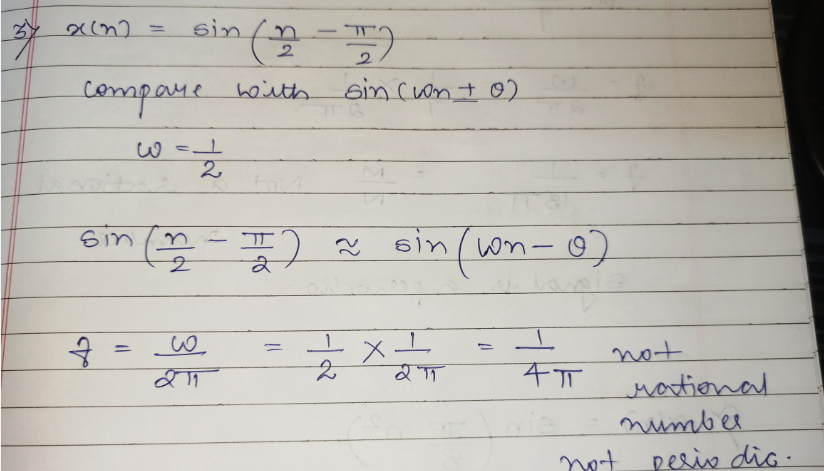 3) x(n) = sin (n/2 - π/2)
compare with sin(ωn ± θ)
ω = 1/2
sin (n/2 - π/2) ≈ sin (ωn - θ)
f = ω/2π = 1/2 × 1/2π = 1/4π not
rational
number
not periodic.